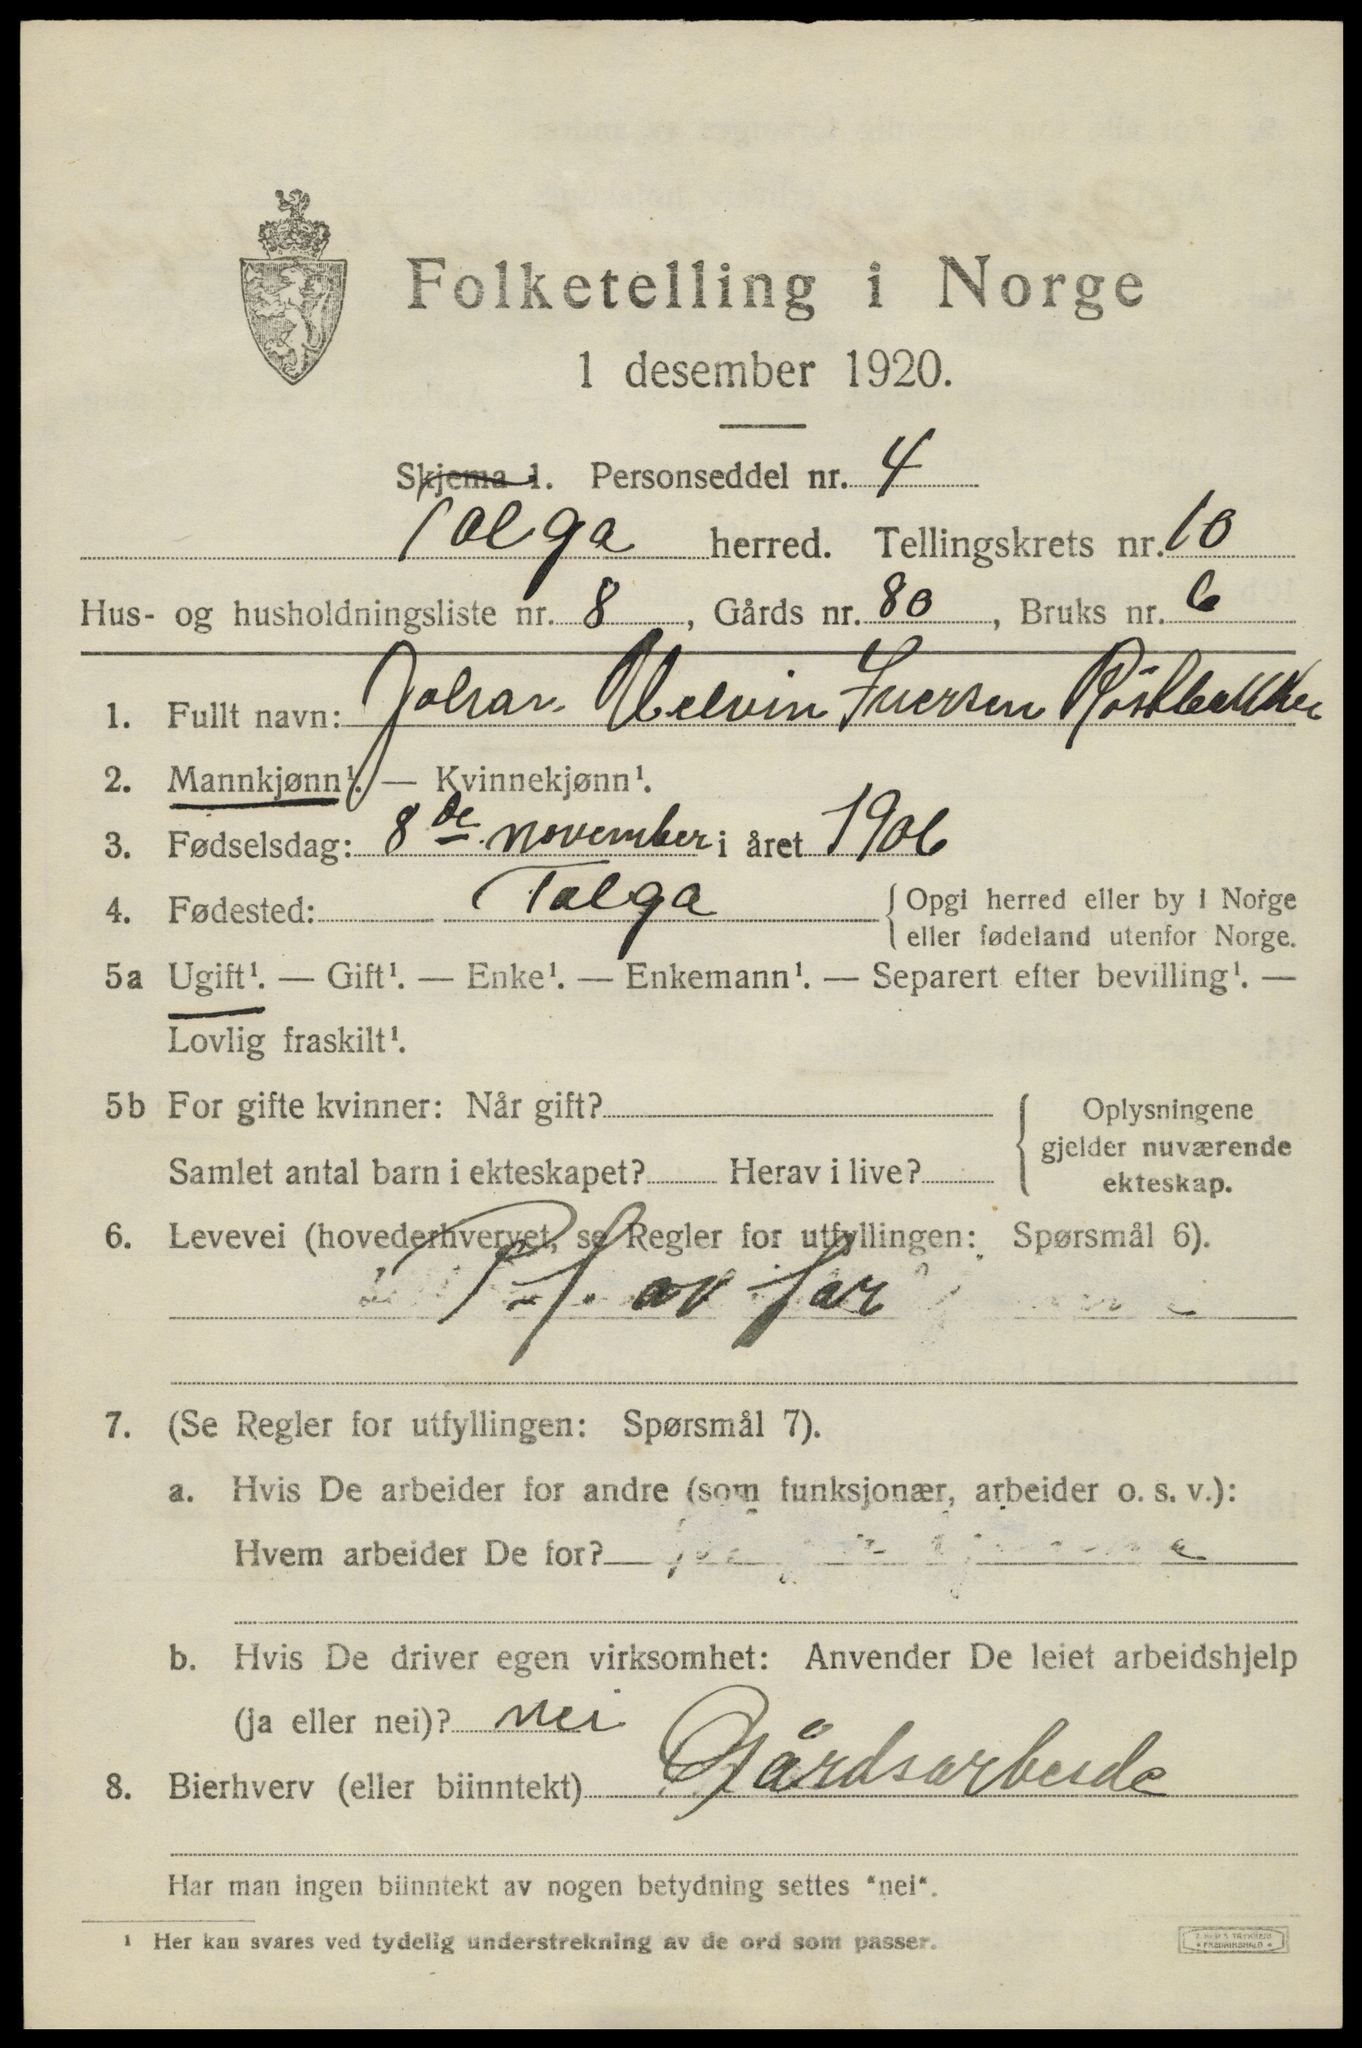 Folketelling i Norge
1 desember 1920.
Skjema 1. Personseddel nr. 4
Tolga herred. Tellingskrets nr. 10
Hus- og husholdningsliste nr. 8, Gårds nr. 80, Bruks nr. 6
1. Fullt navn: Johan Melvin Iversen Röstbakken
2. Mannkjønn¹. — Kvinnekjønn¹.
3. Fødselsdag: 8de november i året 1906
4. Fødested: Tolga {Opgi herred eller by i Norge
eller fødeland utenfor Norge.
5a Ugift¹. — Gift¹. — Enke¹. — Enkemann¹. — Separert efter bevilling¹. —
Lovlig fraskilt¹.
5b For gifte kvinner: Når gift? {Oplysningene
gjelder nuværende
Samlet antal barn i ekteskapet? Herav i live? ekteskap.
6. Levevei (hovederhvervet, se Regler for utfyllingen: Spørsmål 6).
P.f. av far
7. (Se Regler for utfyllingen: Spørsmål 7).
a. Hvis De arbeider for andre (som funksjonær, arbeider o. s. v.):
Hvem arbeider De for?
b. Hvis De driver egen virksomhet: Anvender De leiet arbeidshjelp
(ja eller nei)? nei
8. Bierhverv (eller biinntekt) Gårdsarbeide
Har man ingen biinntekt av nogen betydning settes "nei".
¹ Her kan svares ved tydelig understrekning av de ord som passer.